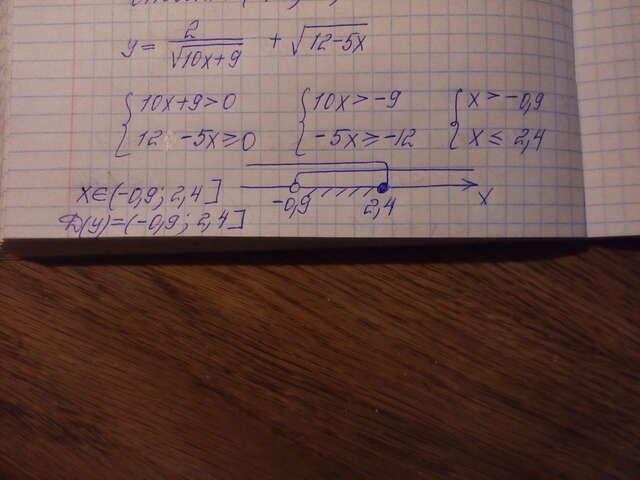 y = 2/√(10x+9) + √(12-5x)
{ 10x+9>0 { 10x>-9 { x>-0,9
{ 12-5x≥0 { -5x≥-12 { x≤2,4
x∈(-0,9; 2,4] -0,9 2,4 x
D(y)=(-0,9; 2,4]